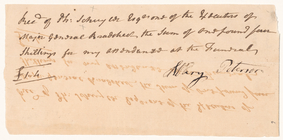 Recd of Ph: Schuyler Esqr one of the Executors of
Major General Bradstreet, the Sum of one pound four
Shillings for my attendance at the Funeral
£1.4.
Mary